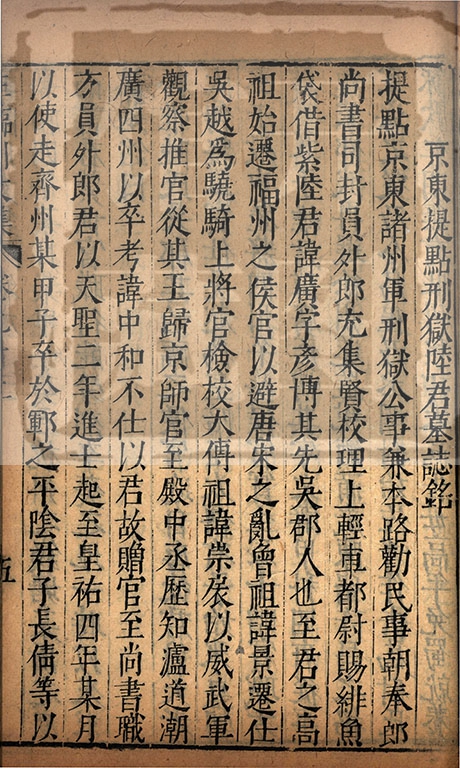 京東提點刑獄陸君墓誌銘
提點京東諸州軍刑獄公事兼本路勸民事朝奉郎
尚書司封員外郎充集賢校理上輕車都尉賜緋魚
袋借紫陸君諱廣字彥博其先吳郡人也至君之高
祖始遷福州之侯官以避唐宋之亂曾祖諱景遷仕
吳越為驍騎上將官檢校大傅祖諱崇扆以威武軍
觀察推官從其王歸京師官至殿中丞歷知瀘道潮
廣四州以卒考諱中和不仕以君故贈官至尚書職
方員外郎君以天聖二年進士起至皇祐四年某月
以使走齊州某甲子卒於鄆之平陰君子長倩等以
五